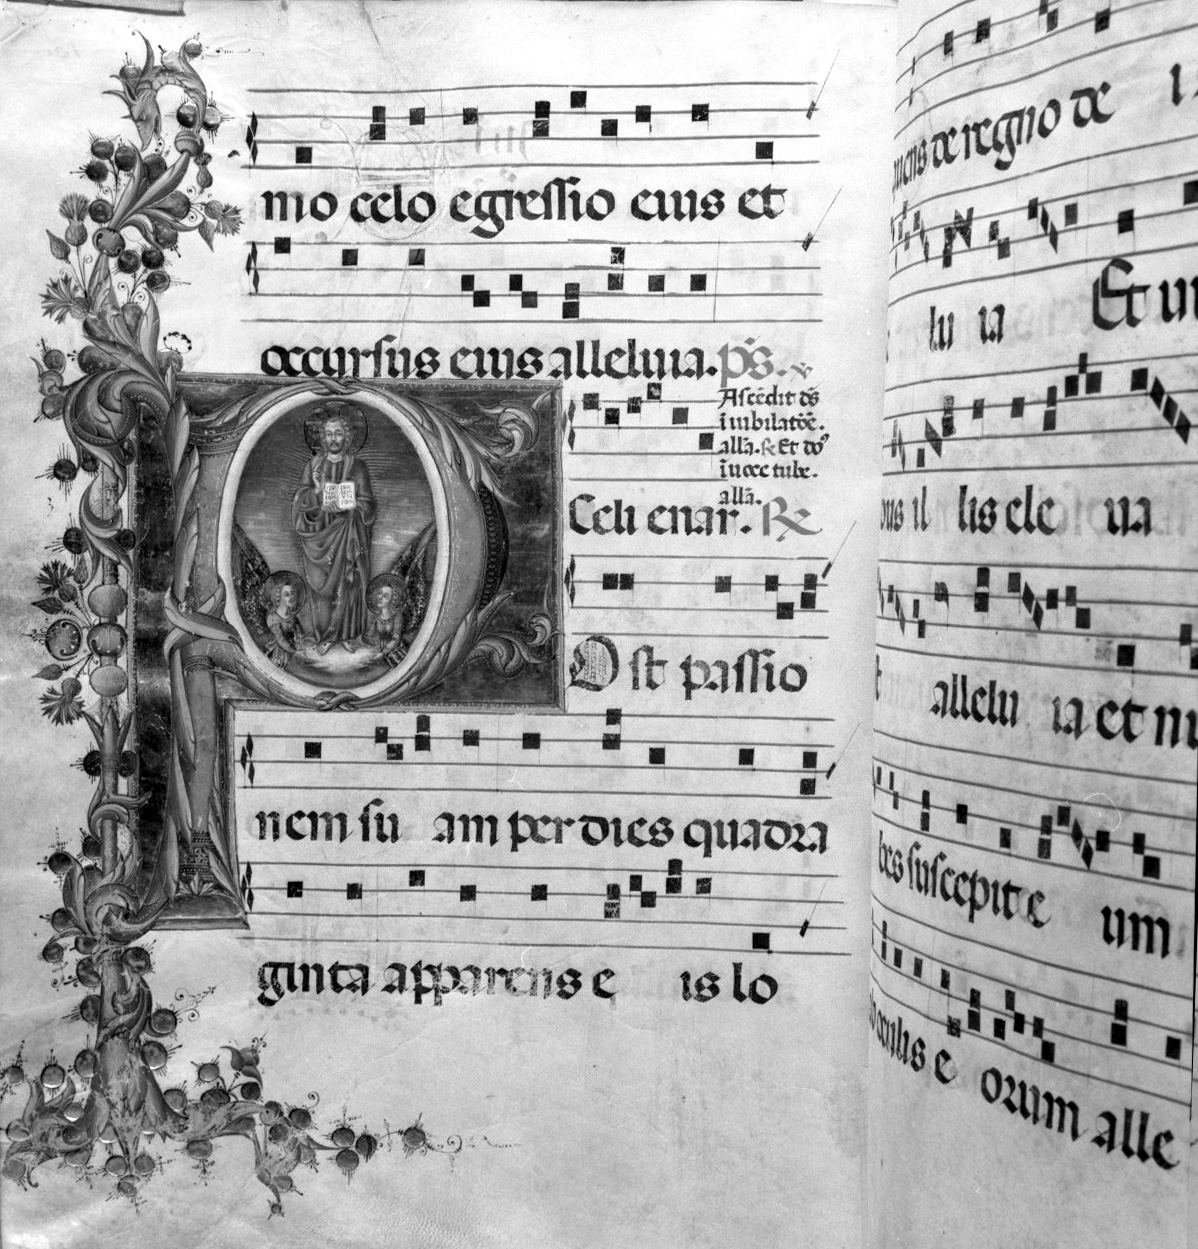 mo celo egressio eius et
occursus eius alleluia. p̄s. v
Ascēdit ds̄
ī iubilatōe.
all̄a. ℟ Et do᷒
ī uoce tube.
all̄a.
Celi enar. ℟
Ost passio
nem su am per dies quadra
ginta apparens e is lo
mens de regno de
lu ia Et ui
bus il lis ele ua
allelu ia et nu
bes suscepit e um
ab oculis e orum alle